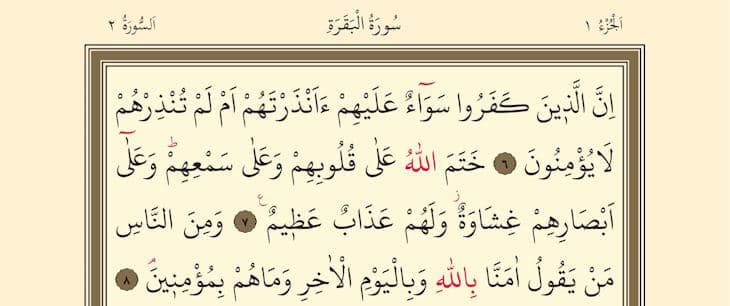 اَلْجُزْءُ ١ سُورَةُ الْبَقَرَةِ اَلسُّورَةُ ٢
اِنَّ الَّذٖينَ كَفَرُوا سَوَٓاءٌ عَلَيْهِمْ ءَاَنْذَرْتَهُمْ اَمْ لَمْ تُنْذِرْهُمْ
لَا يُؤْمِنُونَ ﴿٦﴾ خَتَمَ اللّٰهُ عَلٰى قُلُوبِهِمْ وَعَلٰى سَمْعِهِمْؕ وَعَلٰٓى
اَبْصَارِهِمْ غِشَاوَةٌؗ وَلَهُمْ عَذَابٌ عَظٖيمٌ ﴿٧﴾ وَمِنَ النَّاسِ
مَنْ يَقُولُ اٰمَنَّا بِاللّٰهِ وَبِالْيَوْمِ الْاٰخِرِ وَمَاهُمْ بِمُؤْمِنٖينَۘ ﴿٨﴾